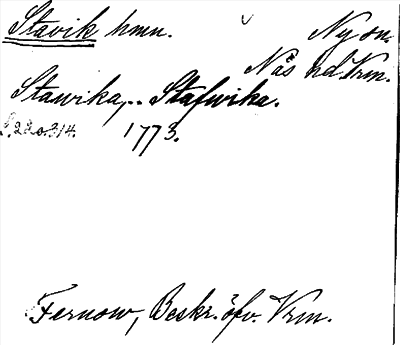 Stavik hmn. Ny sn.
Näs hd. Vrm.
Stawika,.. Stafwika.
S. 220. 314. 1773.
Fernow, Beskr. öfv. Vrm.